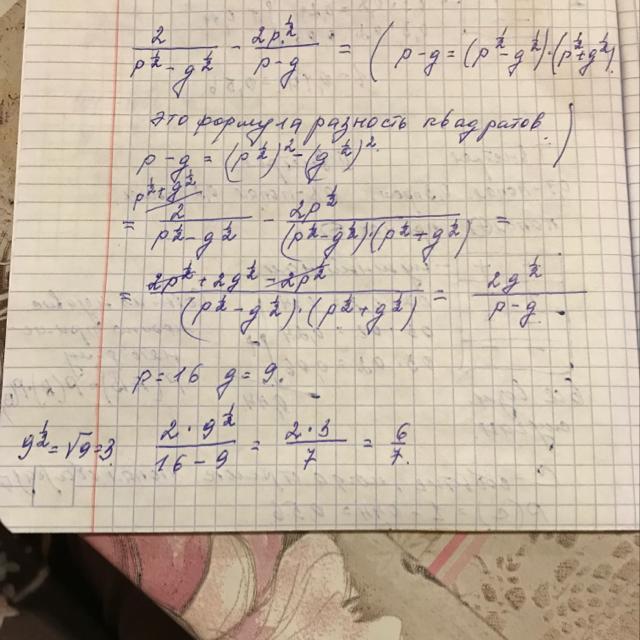 2/(p^½ - g^½) - 2p^½/(p - g) = ( p - g = (p^½ - g^½)·(p^½ + g^½)
это формула разность квадратов
p - g = (p^½)² - (g^½)² )
= 2/(p^½ - g^½) (p^½ + g^½ - 2p^½/((p^½ - g^½)·(p^½ + g^½)) =
= (2p^½ + 2g^½ - 2p^½)/((p^½ - g^½)·(p^½ + g^½)) = 2g^½/(p - g)
p = 16 g = 9.
9^½ = √9 = 3 (2·9^½)/(16 - 9) = (2·3)/7 = 6/7.